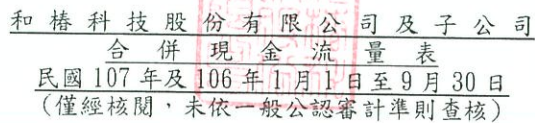 和椿科技股份有限公司及子公司
合併現金流量表
民國107年及106年1月1日至9月30日
(僅經核閱，未依一般公認審計準則查核)